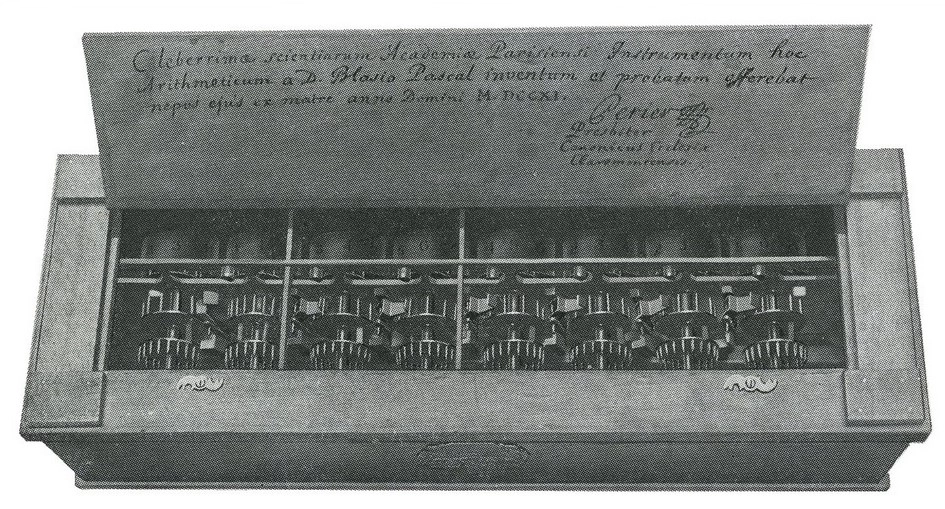 Celeberrimæ scientiarum Academiæ Parisiensi Instrumentum hoc
Arithmeticum a D. Blasio Pascal inventum et probatam offerebat
nepos ejus ex matre anno Domini M.DCCXI.
Perier
Presbiter
Canonicus Ecclesiæ
Claromontensis.